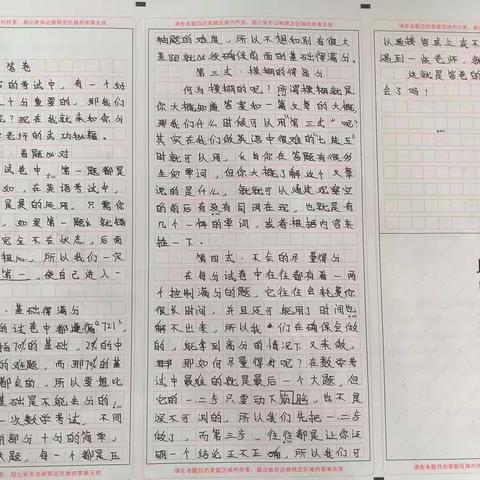 答卷
的考试中，有一个好
十分重要的，那我们
呢？现在我就来和你分
老师的成功秘籍。
首题必对
试卷中，第一题都是
如，在英语考试中，
是最的运用，只需你
，如果第一题就错
完全不在状态，后面
粗心，所以我们一定
第一，使自己进入一
基础得满分
的试卷中都遵循"721"
指70%的基础，2%的中
的难题，而那7%的基
都会的，所以要想比
基础是不能丢分的，
一次数学考试，不同
前部分十分的简单，
大题，每一个都是压
请在各题目的答题区域内作答，超出矩形边框限定区域的答案无效
请在各题目的答题区域内作答，超出矩形边框限定区域的答案无效
轴题的难度，所以不想和别有很大
差距就必须确保前面的基础得满分。
第三式·模糊的得满分
何为模糊的呢？所谓模糊就是
你大概知道答案如一篇文的大概，
那我们什么时候可以用"第三式"呢？
其实在我们做英语中很难的"七选五"
时就可以用，
生的单词，但你大概了解这个文章
说的是什么，就就可以通过观察空
的前后有没有同词在现，也就是有
几个一样的单词，或者根据内容来
推一下。
第四式·不会的尽量得分
在每分试卷中往往都有着一两
个控制满分的题，它往往会耗费你
很长时间，并且还可能用了时间也
解不出来，所以我们在确保会做
的，能拿到高分的情况下又来做，
那如何尽量得分呢？在数学考
试中最难的就是最后一个大题，但
它的一二步只要动下脑筋，也不是
深不可测的，所以我们先把一二步
做了，而第三步，往往都是让你证
明一个结论正不正确，所以我们可
请在各题目的答题区域内作答，超出矩形边框限定区域的答案无效
请在各题目的答题区域内作答，超出矩形边框限定
以直接写求上或不
遇到一些老师，就
这就是答卷的
会了吗！
请在各题目的答题区域内作答，超出矩形边框限定